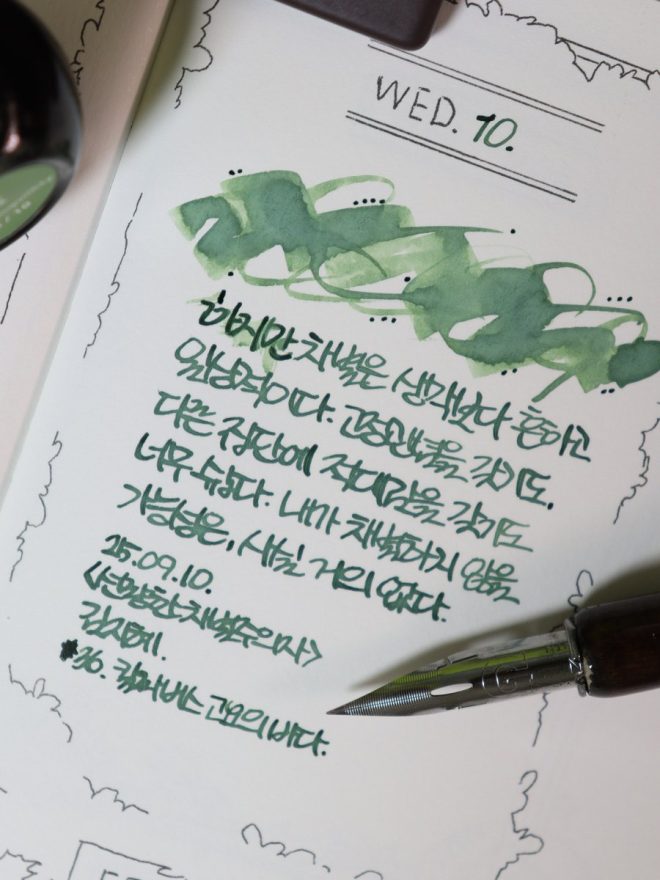 WED. 10.
하지만 차별은 생각보다 흔하고
일상적이다. 고정관념을 갖기도,
다른 집단에 적대감을 갖기도
너무 쉽다. 내가 차별하지 않을
가능성은, 사실 거의 없다.
25.09.10.
<선량한 차별주의자>
김지혜.
#36. 컬러버스 고요의 바다.